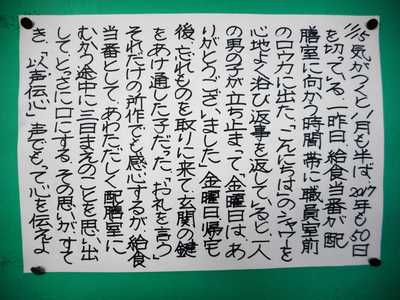 11/15 気がつくと11月も半ば、2017年も50日
を切っている。一昨日、給食当番が配
膳室に向かう時間帯に職員室前
のロウカに出た。「こんにちは」のシャワーを
心地よく浴び返事を返していると、一人
の男の子が立ち止まって「金曜日は、あ
りがとうございました」。金曜日帰宅
後、忘れものを取りに来て玄関の鍵
をあけ通した子だった。お礼を言う
それだけの所作でも感心するが、給食
当番として、あわただしく配膳室に
むかう途中に三日まえのことを思い出
して、とっさに口にする。その思いが、すて
き、「以声伝心」声でもって心を伝えよ